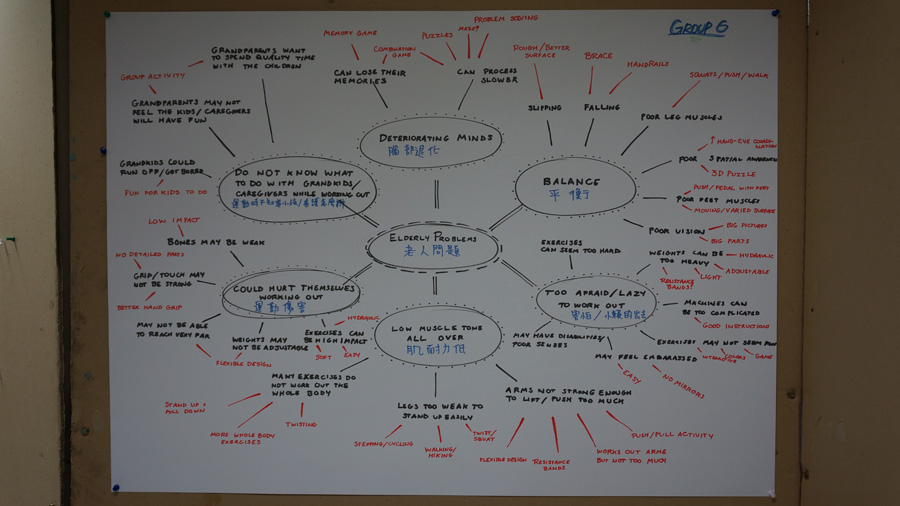 GROUP 6
MEMORY GAME
COMBINATION
GAME
PUZZLES
MAZE?
PROBLEM SOLVING
ROUGH/BETTER
SURFACE
BRACE
HANDRAILS
SQUATS/PUSH/WALK
GROUP ACTIVITY
GRANDPARENTS WANT
TO SPEND QUALITY TIME
WITH THE CHILDREN
CAN LOSE THEIR
MEMORIES
CAN PROCESS
SLOWER
SLIPPING
FALLING
POOR LEG MUSCLES
GRANDPARENTS MAY NOT
FEEL THE KIDS/CAREGIVERS
WILL HAVE FUN
DETERIORATING MINDS
腦部退化
GRANDKIDS COULD
RUN OFF/GOT BORED
FUN FOR KIDS TO DO
DO NOT KNOW WHAT
TO DO WITH GRANDKIDS/
CAREGIVERS WHILE WORKING OUT
BALANCE
平
POOR SPATIAL AWARENESS
↑ HAND-EYE COORDI-
NATION
3D PUZZLE
POOR FEET MUSCLES
PUSH/PEDAL WITH FEET
MOVING/VARIED SURFACE
POOR VISION
BIG PICTURES
BIG PARTS
ELDERLY PROBLEMS
老人問題
LOW IMPACT
BONES MAY BE WEAK
NO DETAILED PARTS
GRIP/TOUCH MAY
NOT BE STRONG
BETTER HAND GRIP
MAY NOT BE ABLE
TO REACH VERY FAR
COULD HURT THEMSELVES
WORKING OUT
運動傷害
WEIGHTS MAY
NOT BE ADJUSTABLE
FLEXIBLE DESIGN
EXERCISES CAN
BE HIGH IMPACT
HYDRAULIC
SOFT
EASY
EXERCISES
CAN SEEM TOO HARD
TOO AFRAID/LAZY
TO WORK OUT
害怕/
WEIGHTS CAN BE
TOO HEAVY
HYDRAULIC
ADJUSTABLE
LIGHT
RESISTANCE
BANDS!
MACHINES CAN
BE TOO COMPLICATED
GOOD INSTRUCTIONS
EXERCISES MAY NOT SEEM FUN
INTERACTIVE
COLORS
GAME
MAY HAVE DISABILITIES/
POOR SENSES
MAY FEEL EMBARASSED
EASY
NO MIRRORS
LOW MUSCLE TONE
ALL OVER
肌耐力低
MANY EXERCISES DO
NOT WORK OUT THE
WHOLE BODY
STAND UP &
PULL DOWN
MORE WHOLE BODY
EXERCISES
TWISTING
LEGS TOO WEAK TO
STAND UP EASILY
STEPPING/CYCLING
WALKING/
HIKING
TWIST/
SQUAT
ARMS NOT STRONG ENOUGH
TO LIFT/PUSH TOO MUCH
FLEXIBLE DESIGN
RESISTANCE
BANDS
WORKS OUT ARMS
BUT NOT TOO MUCH
PUSH/PULL ACTIVITY